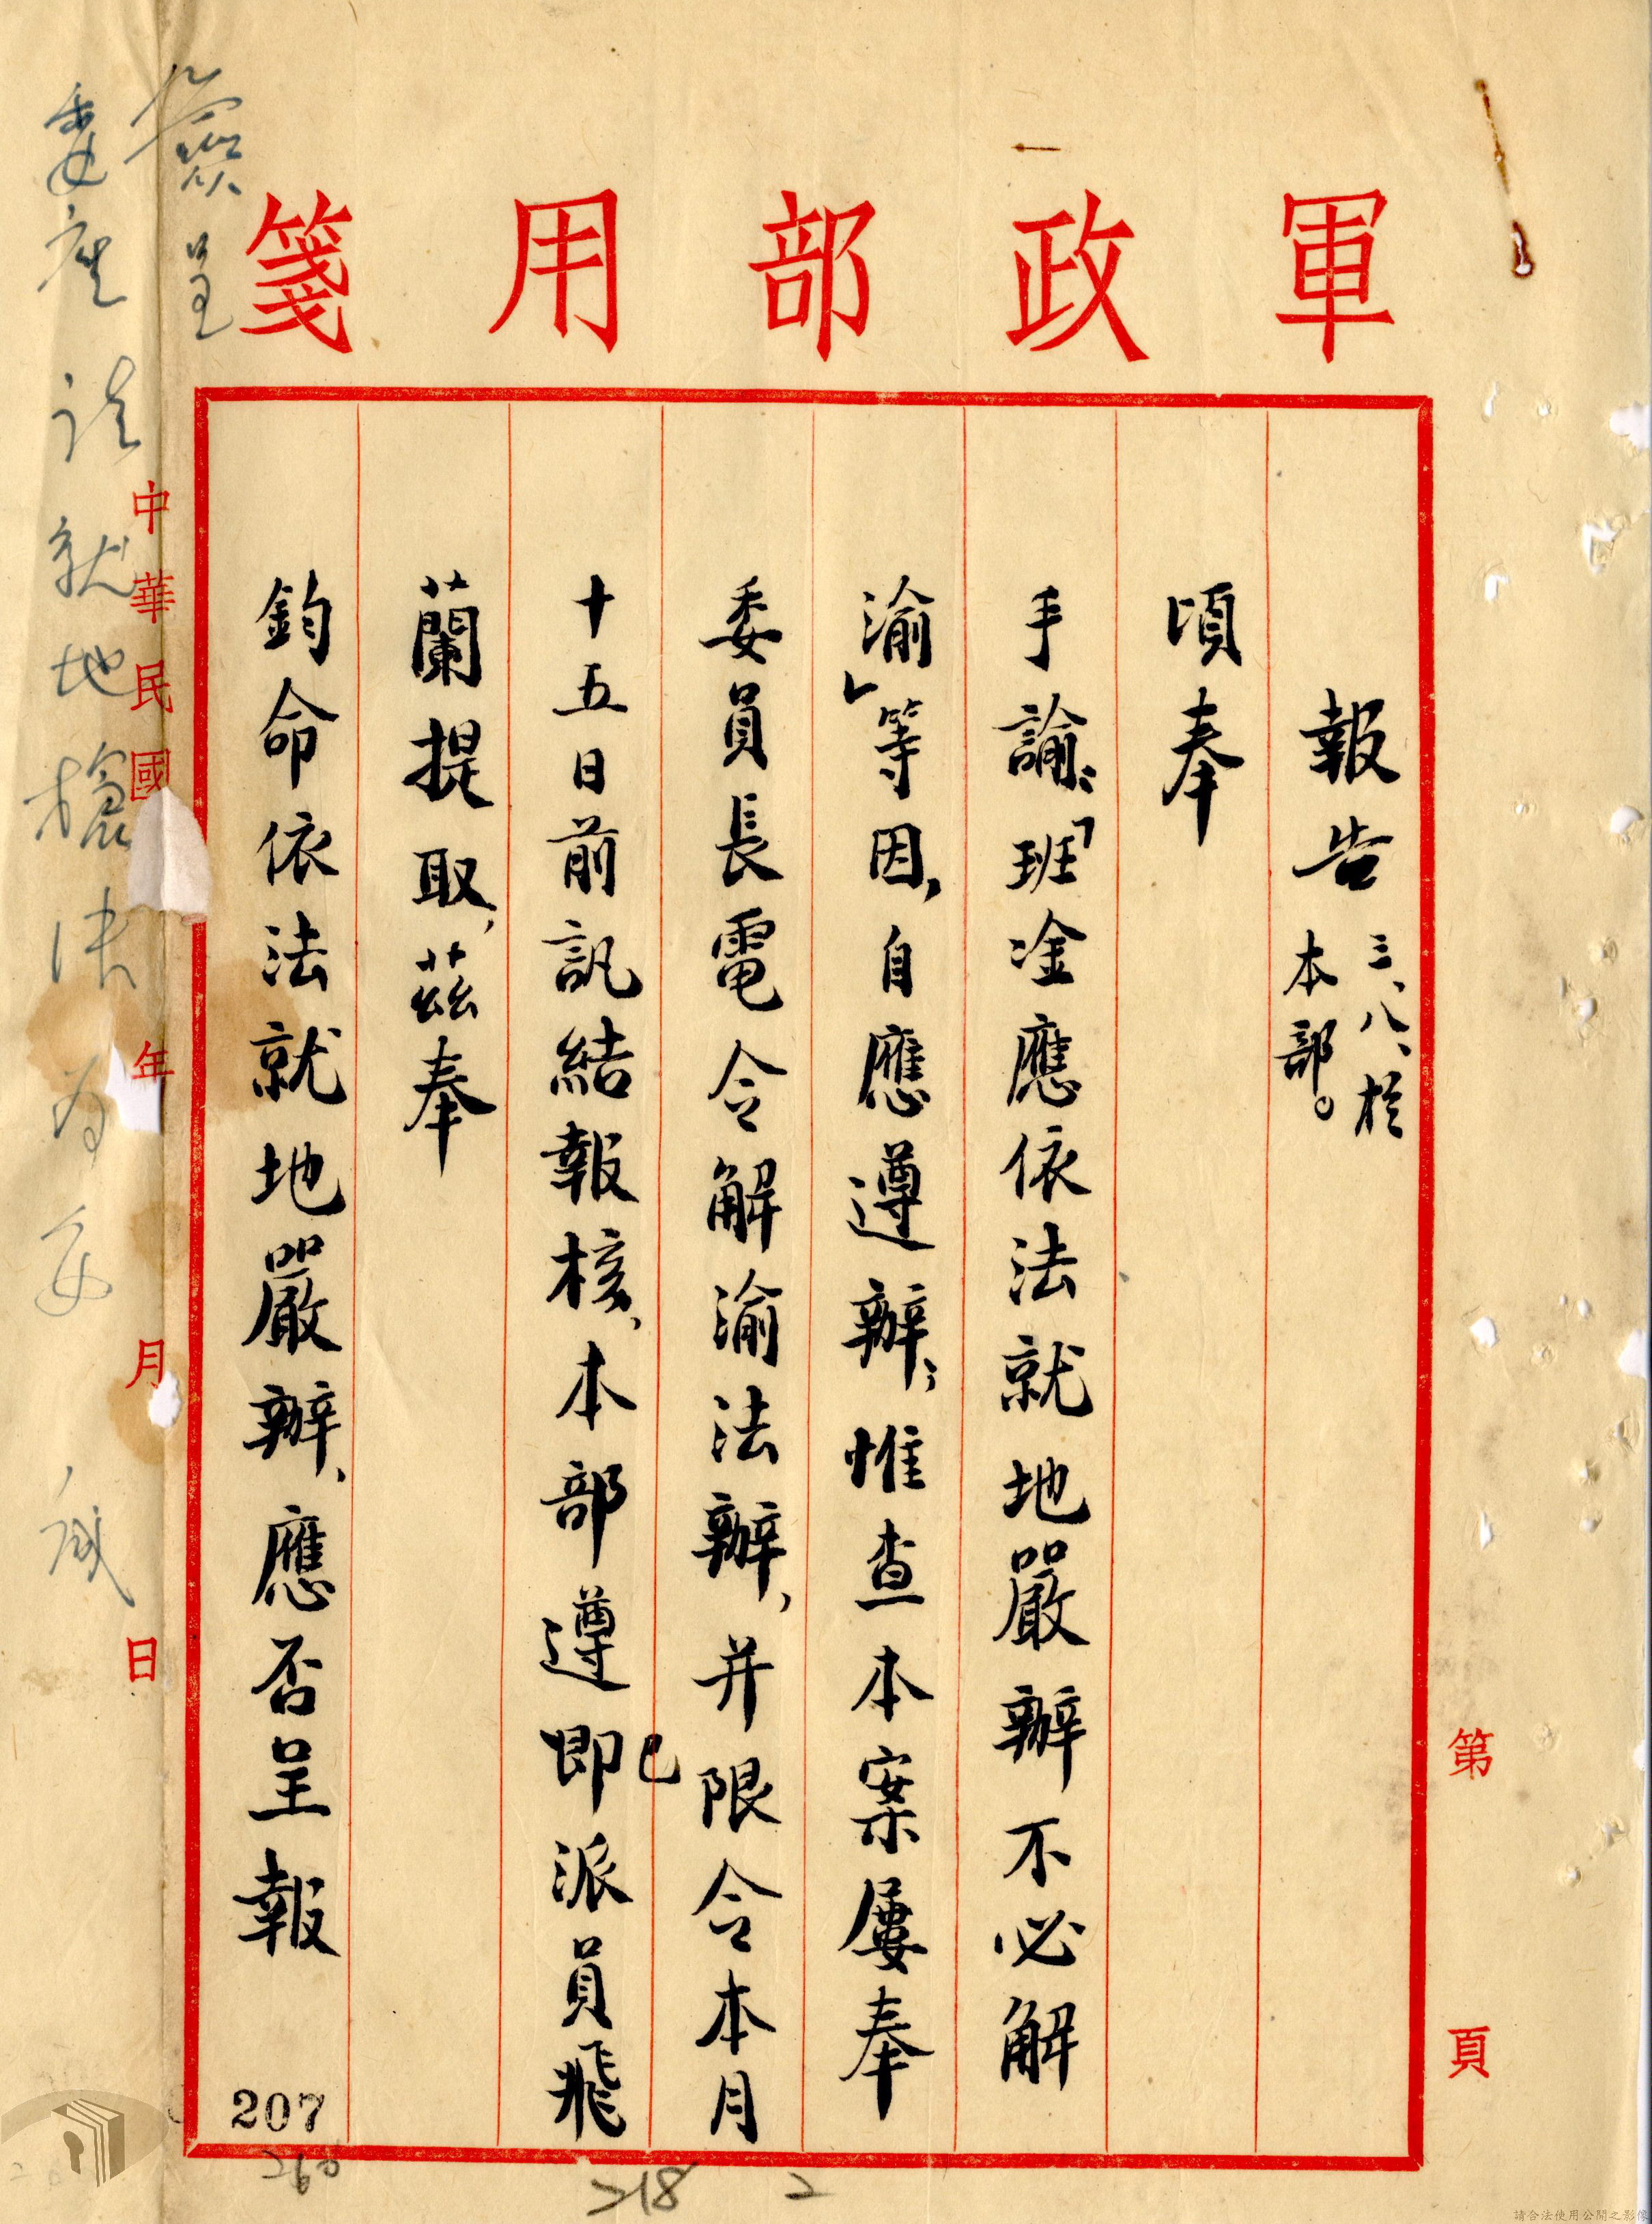 軍政部用箋
報告 三、八、於
本部。
頃奉
手諭：「班淦應依法就地嚴辦不必解
渝」等因，自應遵辦；惟查本案屢奉
委員長電令解渝法辦，并限令本月
十五日前訊結報核，本部遵即已派員飛
蘭提取，茲奉
鈞命依法就地嚴辦，應否呈報
簽呈
委座說就地槍決為妥
中華民國 年 月 日
第 頁
207
260
218
2
請合法使用公開之影像